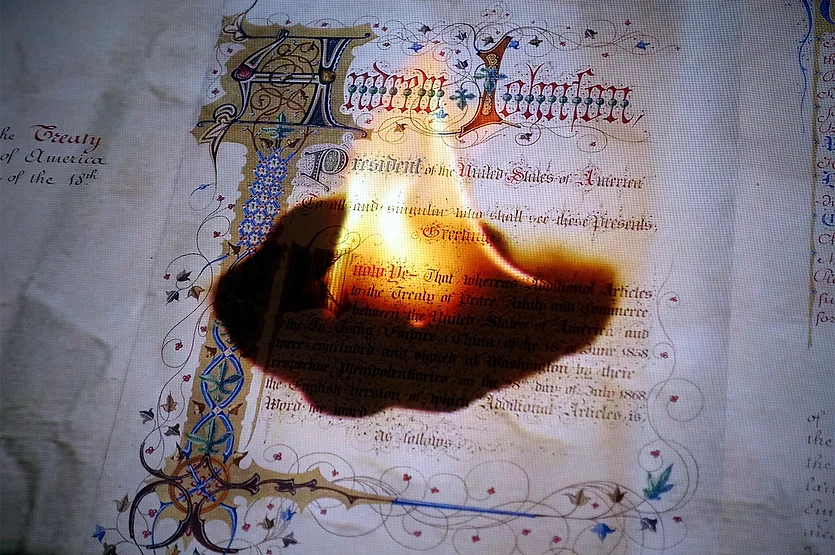 the Treaty
of America
of the 18th
Andrew Johnson,
President of the United States of America
To all and singular who shall see these Presents,
Greeting
Now Ye- That whereas Additional Articles
to the Treaty of Peace, Amity and Commerce
between the United States of America and
the Ta-Tsing Empire (China) of the 18 June 1858,
were concluded and signed at Washington by their
respective Plenipotentiaries, on the day of July 1868
the English version of which Additional Articles is,
Word for word
as follows
of
the